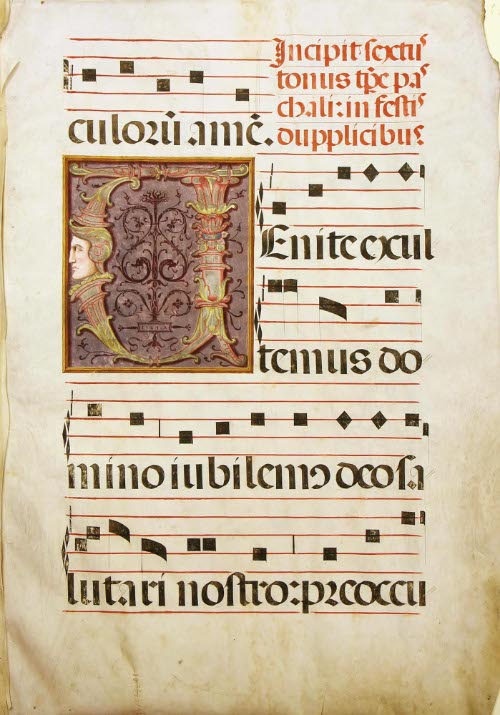 culorū amē.
Incipit sextu᾽
tonus tp̄e pa᾽
chali: in festi᾽
dupplicibu᾽
VEnite exul
temus do
mino iubilemꝰ deo sa
lutari nostro: preoccu